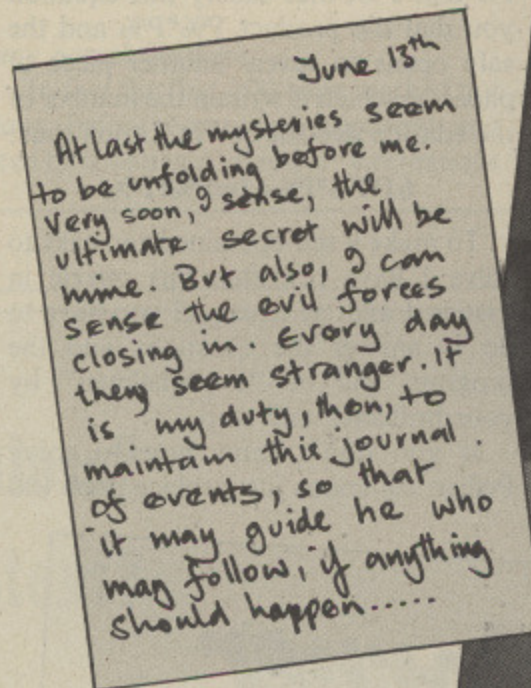 June 13th
At last the mysteries seem
to be unfolding before me.
Very soon, I sense, the
ultimate secret will be
mine. But also, I can
sense the evil forces
closing in. Every day
they seem stranger. It
is my duty, then, to
maintain this journal
of events, so that
it may guide he who
may follow, if anything
should happen.....